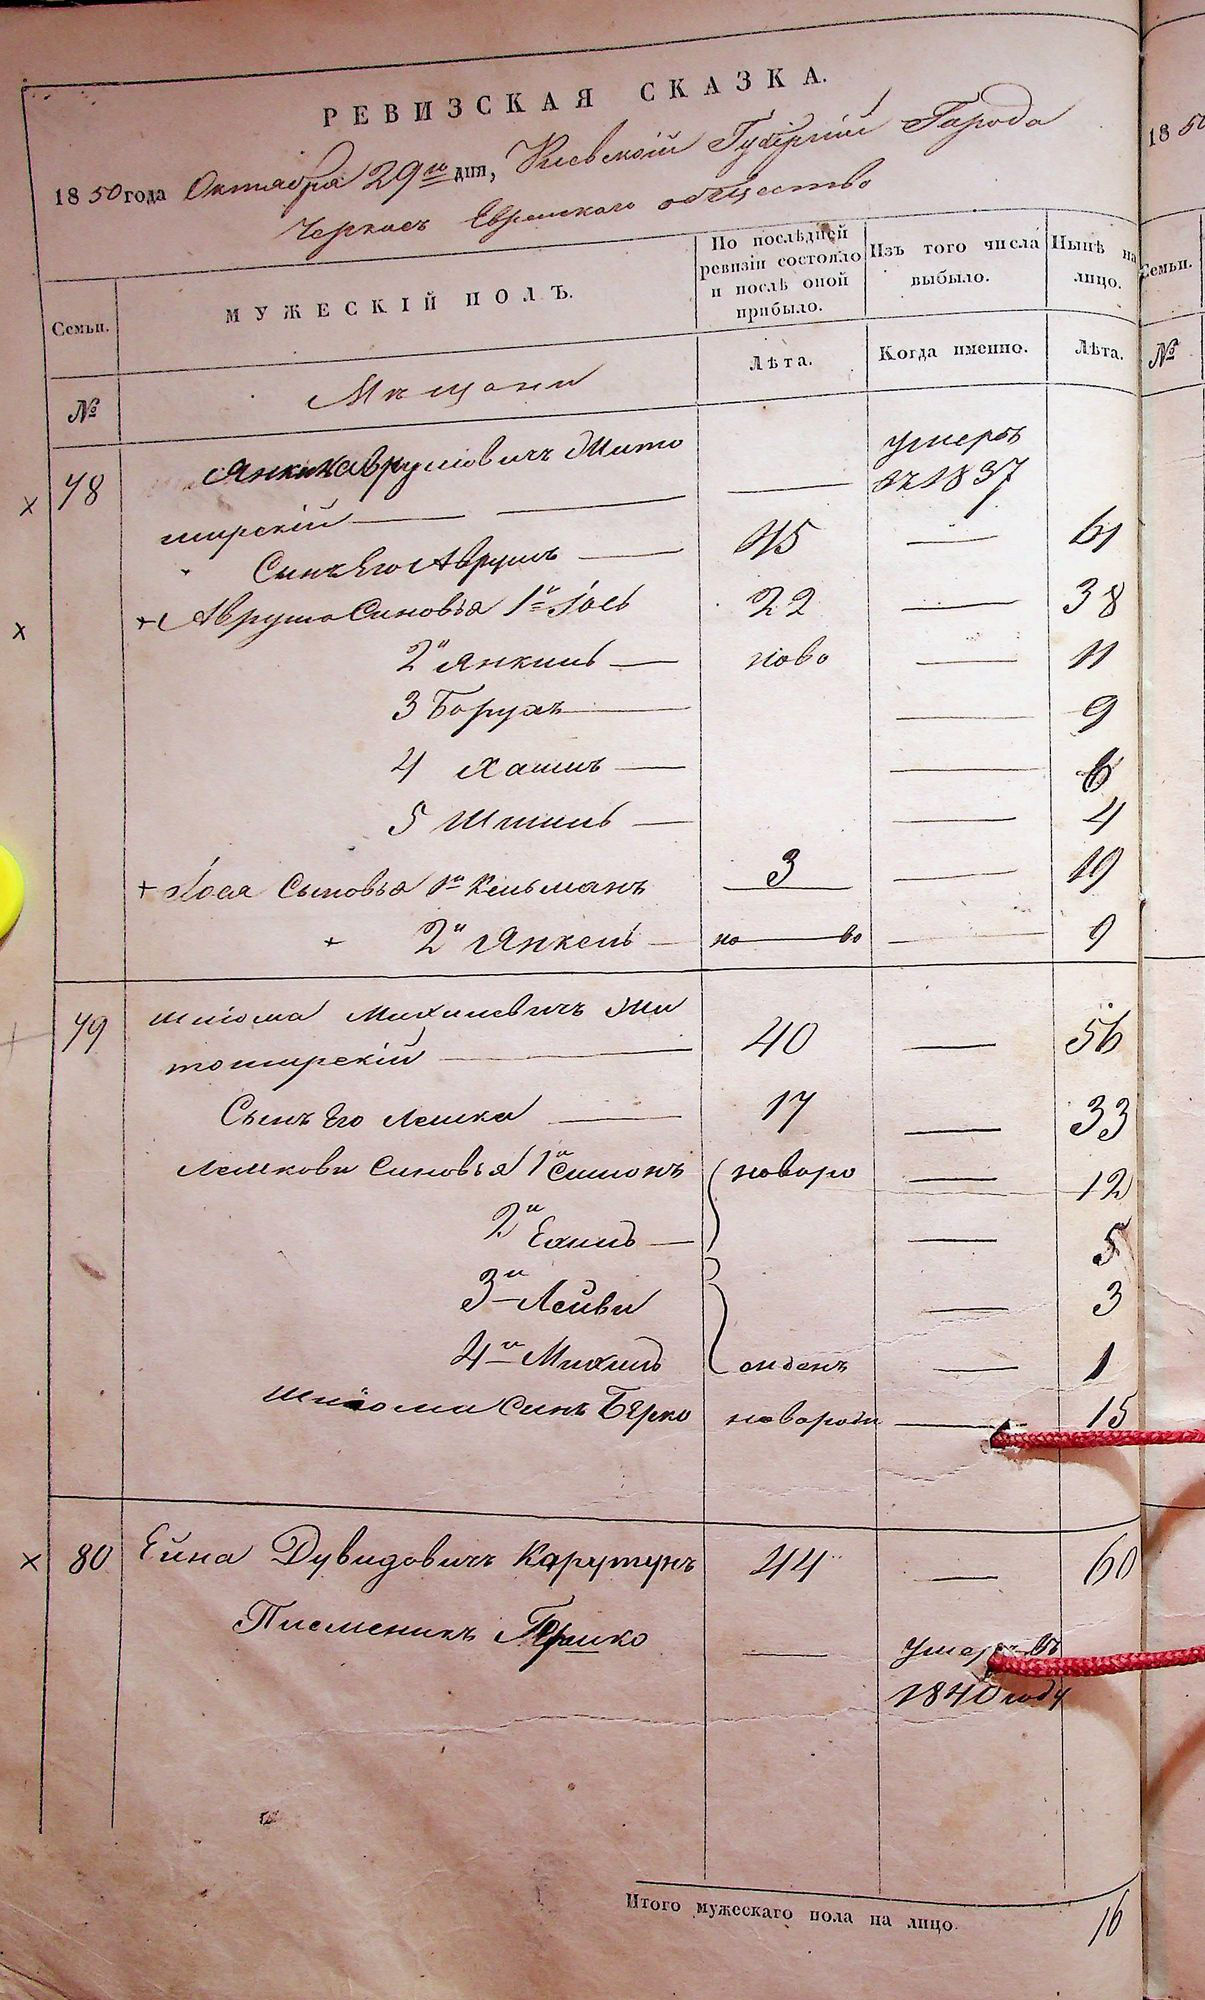 РЕВИЗСКАЯ СКАЗКА.
1850 года Октября 29го дня, Киевской Губернии Города
Черкас Еврейского общество
Семьи.
МУЖЕСКІЙ ПОЛЪ.
По послѣдней ревизіи состояло и послѣ оной прибыло.
Изъ того числа выбыло.
Нынѣ на лицо.
№
Лѣта.
Когда именно.
Лѣта.
Мещани
78 Янкель Аврумовичъ Жито умеръ
мирскій въ 1837
Сынъ Его Аврумъ 45 61
Аврума Синовья 1й Іось 22 38
2й Янкиль ново 11
3 Борухъ 9
4 Хаимъ 6
5 Шмиль 4
Іося Сыновья 1й Кельманъ 3 19
2й Янкель но во 9
79 Шліома Михилевичъ Жи
томирскій 40 56
Сынъ Его Лемка 17 33
Лемкови Синовья 1й Симонъ новоро 12
2й Ехиль 5
3й Лейви 3
4й Михиль жденъ 1
Шліома Синъ Берко новорож 15
80 Ейна Дувидовичъ Карутунъ 44 60
Племеникъ Гершко умеръ въ
1840 году
Итого мужескаго пола на лицо. 16
1850
Семьи.
№